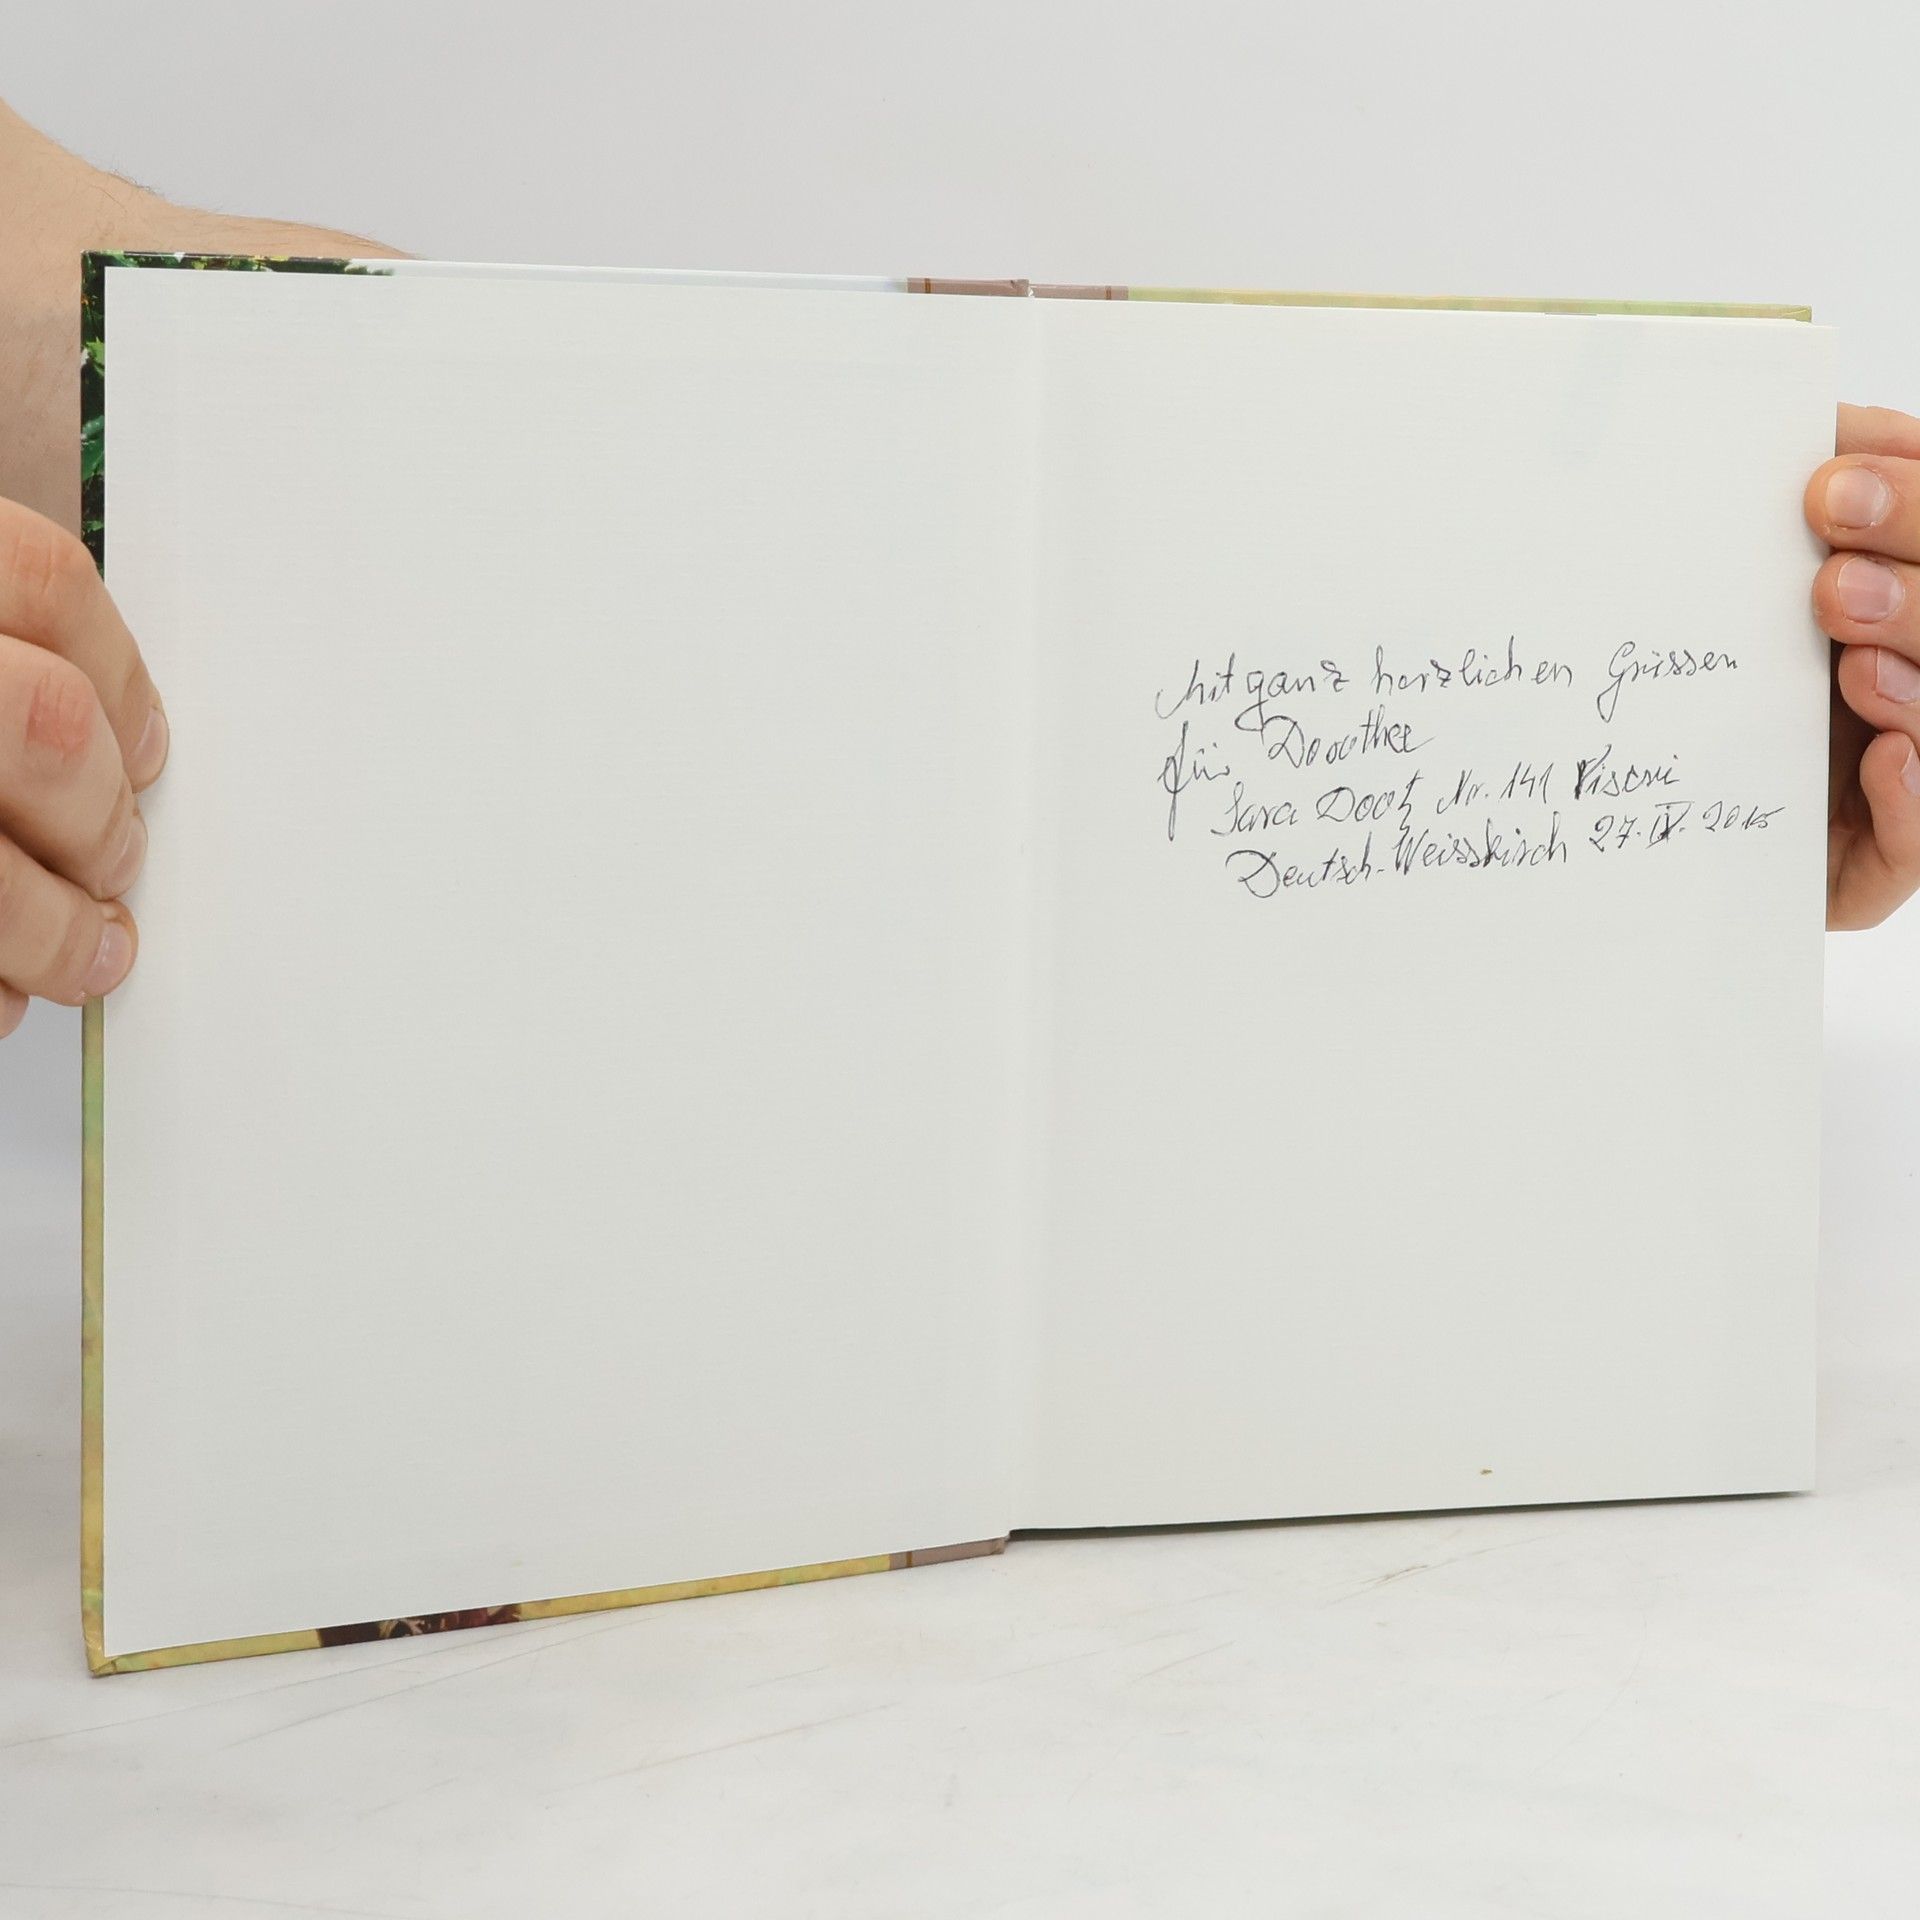 Mit ganz herzlichen Grüssen
für Dorothee
Sara Dootz Nr. 141 Viscri
Deutsch-Weisskirch 27. IV. 2015